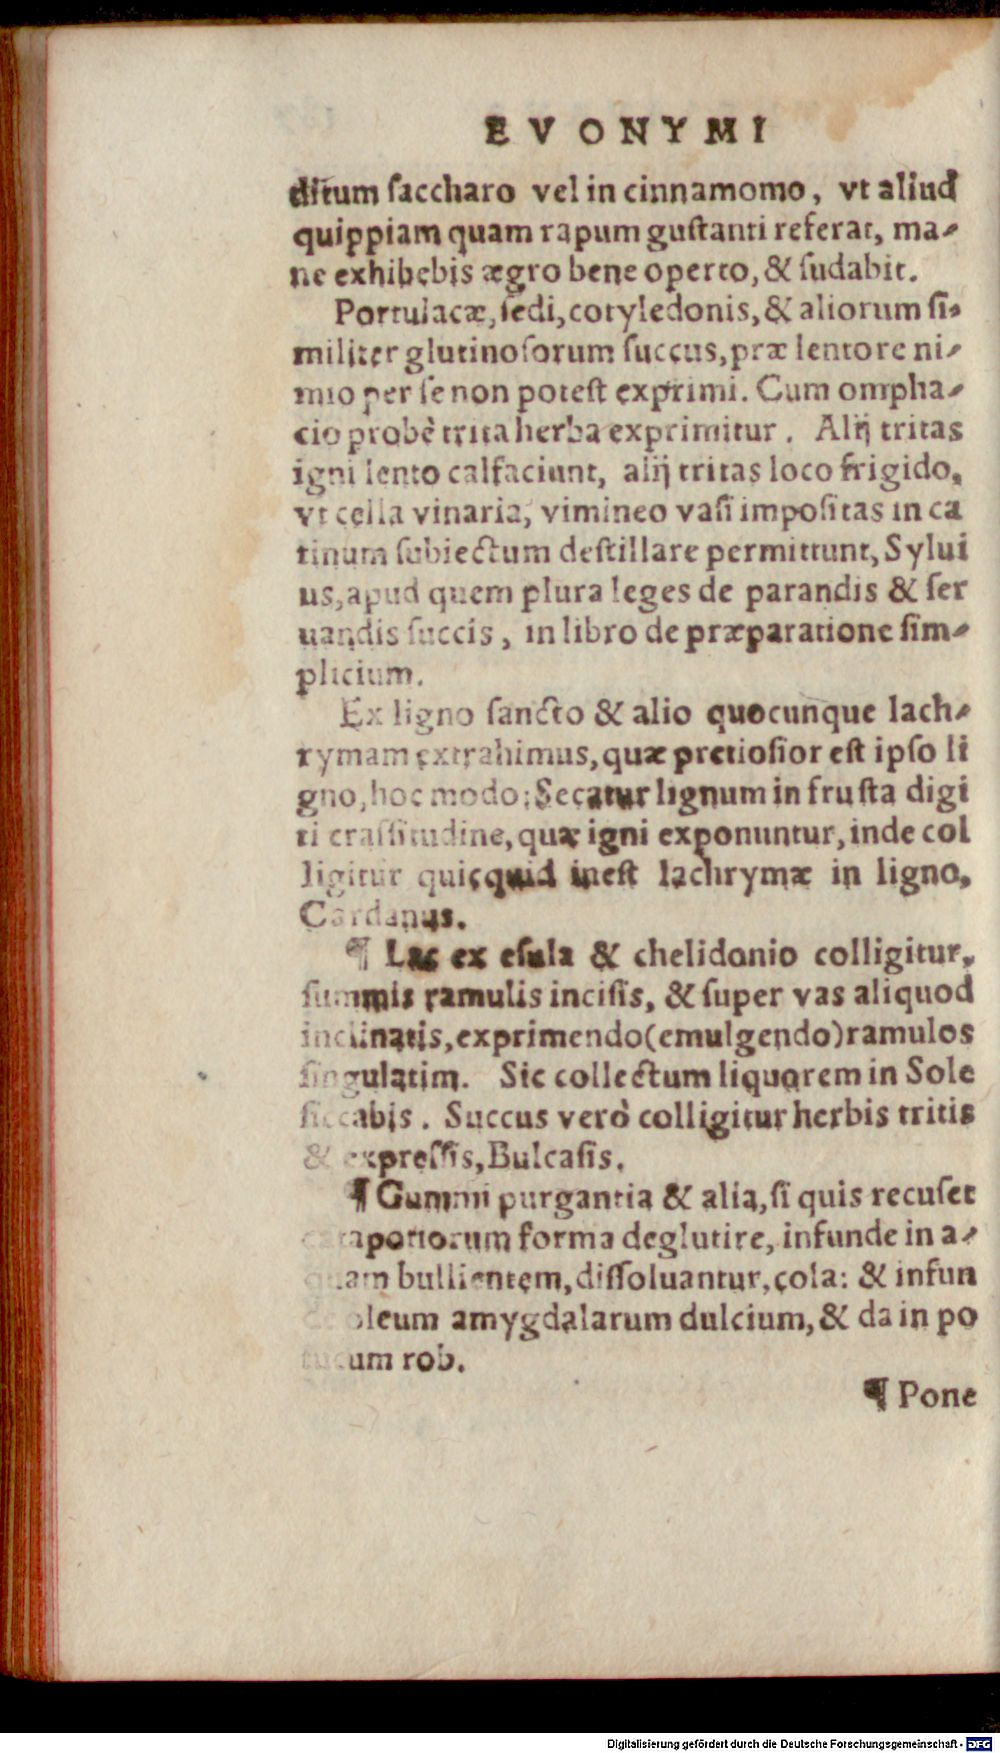 EVONYMI
ditum ſaccharo vel in cinnamomo, vt aliud
quippiam quam rapum guſtanti referat, ma-
ne exhibebis ægro bene operto, & ſudabit.
Portulacæ, ſedi, cotyledonis, & aliorum ſi-
militer glutinoſorum ſuccus, præ lentore ni-
mio per ſe non poteſt exprimi. Cum ompha-
cio probè trita herba exprimitur. Alij tritas
igni lento calfaciunt, alij tritas loco frigido,
vt cella vinaria, vimineo vaſi impoſitas in ca
tinum ſubiectum deſtillare permittunt, Sylui
us, apud quem plura leges de parandis & ſer
uandis ſuccis, in libro de præparatione ſim-
plicium.
Ex ligno ſancto & alio quocunque lach-
rymam extrahimus, quæ pretioſior eſt ipſo li
gno, hoc modo: Secatur lignum in fruſta digi
ti craſſitudine, quæ igni exponuntur, inde col
ligitur quicquid ineſt lachrymæ in ligno,
Cardanus.
¶ Lac ex eſula & chelidonio colligitur,
ſummis ramulis inciſis, & ſuper vas aliquod
inclinatis, exprimendo (emulgendo) ramulos
ſingulatim. Sic collectum liquorem in Sole
ſiccabis. Succus verò colligitur herbis tritis
& expreſſis, Bulcaſis.
¶ Gummi purgantia & alia, ſi quis recuſet
catapotiorum forma deglutire, infunde in a-
quam bullientem, diſſoluantur, cola: & infun
de oleum amygdalarum dulcium, & da in po
tu cum rob.
¶ Pone
Digitalisierung gefördert durch die Deutsche Forschungsgemeinschaft - DFG